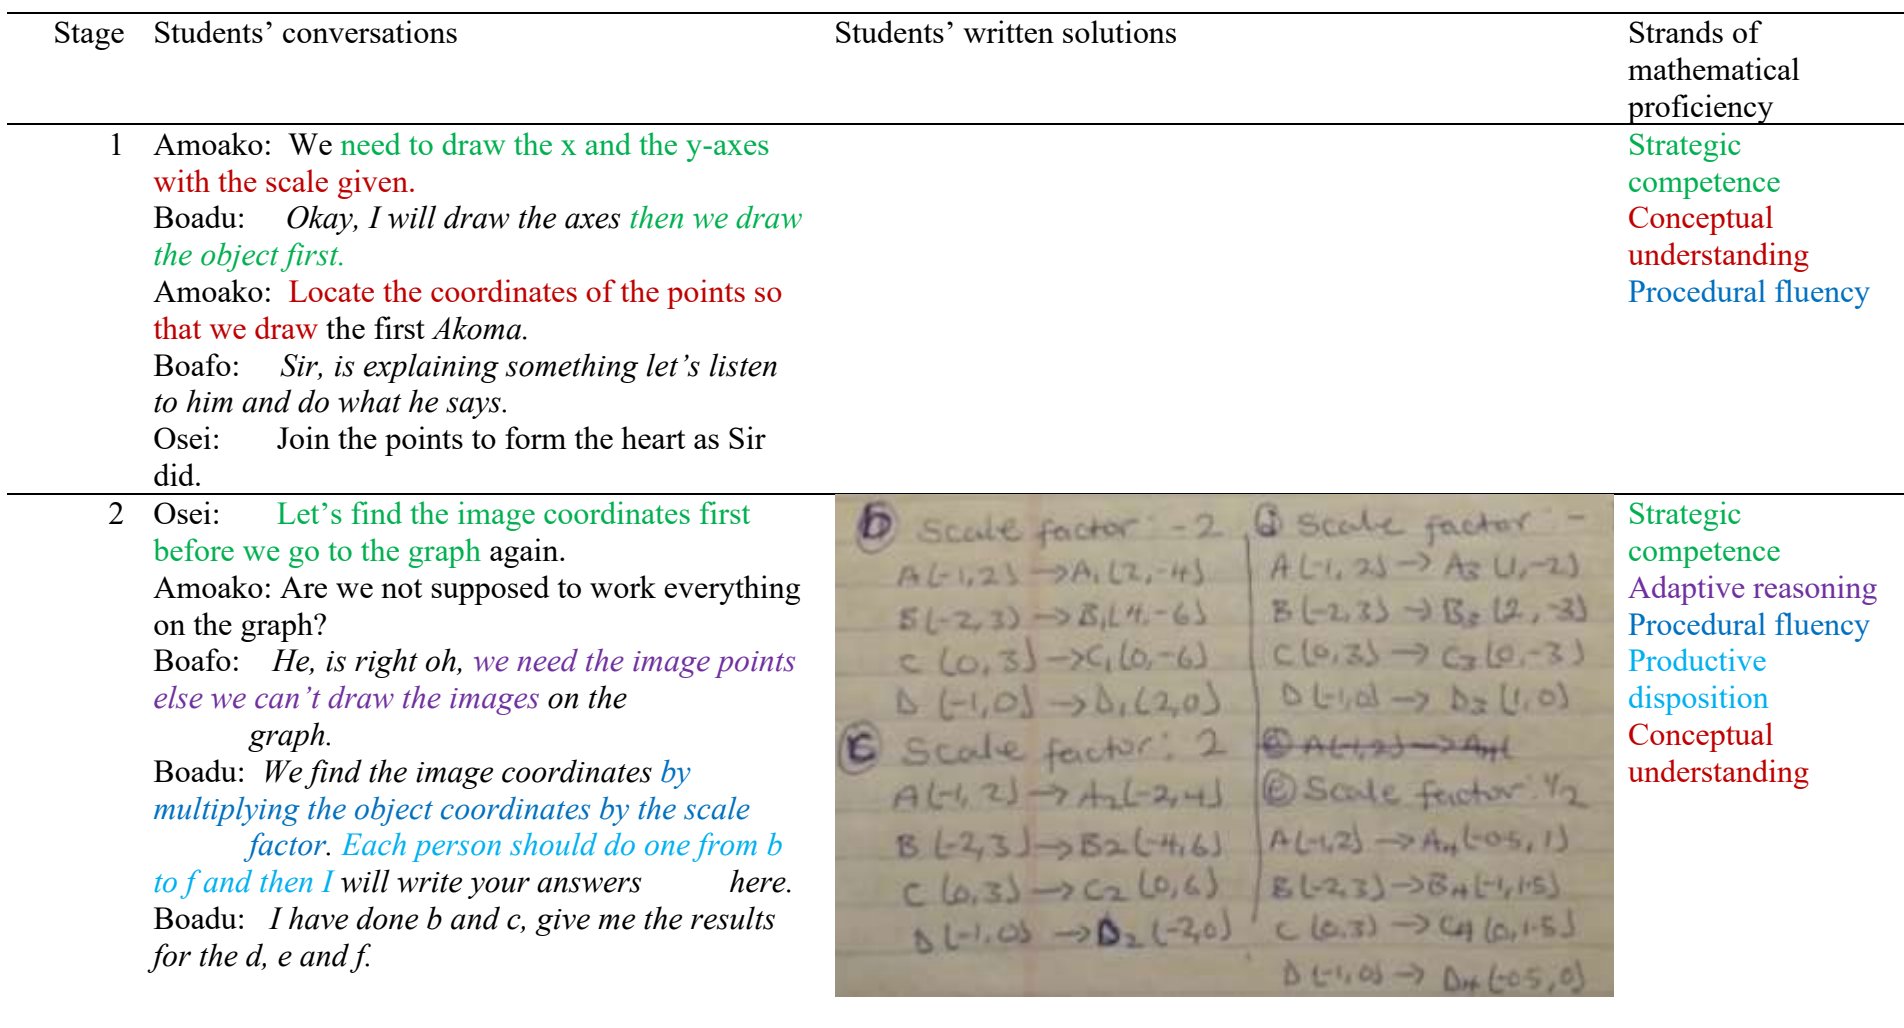 Stage Students’ conversations Students’ written solutions Strands of mathematical proficiency
1 Amoako: We need to draw the x and the y-axes
with the scale given.
Boadu: Okay, I will draw the axes then we draw
the object first.
Amoako: Locate the coordinates of the points so
that we draw the first Akoma.
Boafo: Sir, is explaining something let’s listen
to him and do what he says.
Osei: Join the points to form the heart as Sir
did.
Strategic
competence
Conceptual
understanding
Procedural fluency
2 Osei: Let’s find the image coordinates first
before we go to the graph again.
Amoako: Are we not supposed to work everything
on the graph?
Boafo: He, is right oh, we need the image points
else we can’t draw the images on the
graph.
Boadu: We find the image coordinates by
multiplying the object coordinates by the scale
factor. Each person should do one from b
to f and then I will write your answers here.
Boadu: I have done b and c, give me the results
for the d, e and f.
b Scale factor: -2
A(-1,2) → A₁(2,-4)
B(-2,3) → B₁(4,-6)
C(0,3) → C₁(0,-6)
D(-1,0) → D₁(2,0)
c Scale factor: 2
A(-1,2) → A₂(-2,4)
B(-2,3) → B₂(-4,6)
C(0,3) → C₂(0,6)
D(-1,0) → D₂(-2,0)
d Scale factor: -
A(-1,2) → A₃(1,-2)
B(-2,3) → B₃(2,-3)
C(0,3) → C₃(0,-3)
D(-1,0) → D₃(1,0)
e Scale factor: 1/2
A(-1,2) → A₄(-0.5,1)
B(-2,3) → B₄(-1,1.5)
C(0,3) → C₄(0,1.5)
D(-1,0) → D₄(-0.5,0)
Strategic
competence
Adaptive reasoning
Procedural fluency
Productive
disposition
Conceptual
understanding